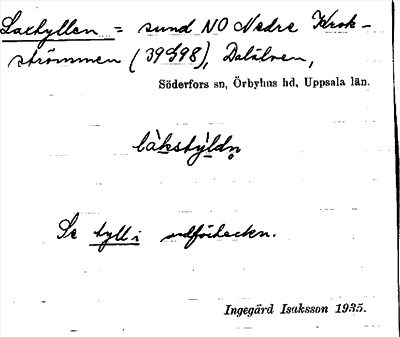 Laxtyllen = sund NO Nedre Krok-
strömmen (39 S 98), Dalälven,
Söderfors sn, Örbyhus hd, Uppsala län.
Se tyll i ordförteckn.
Ingegärd Isaksson 1935.